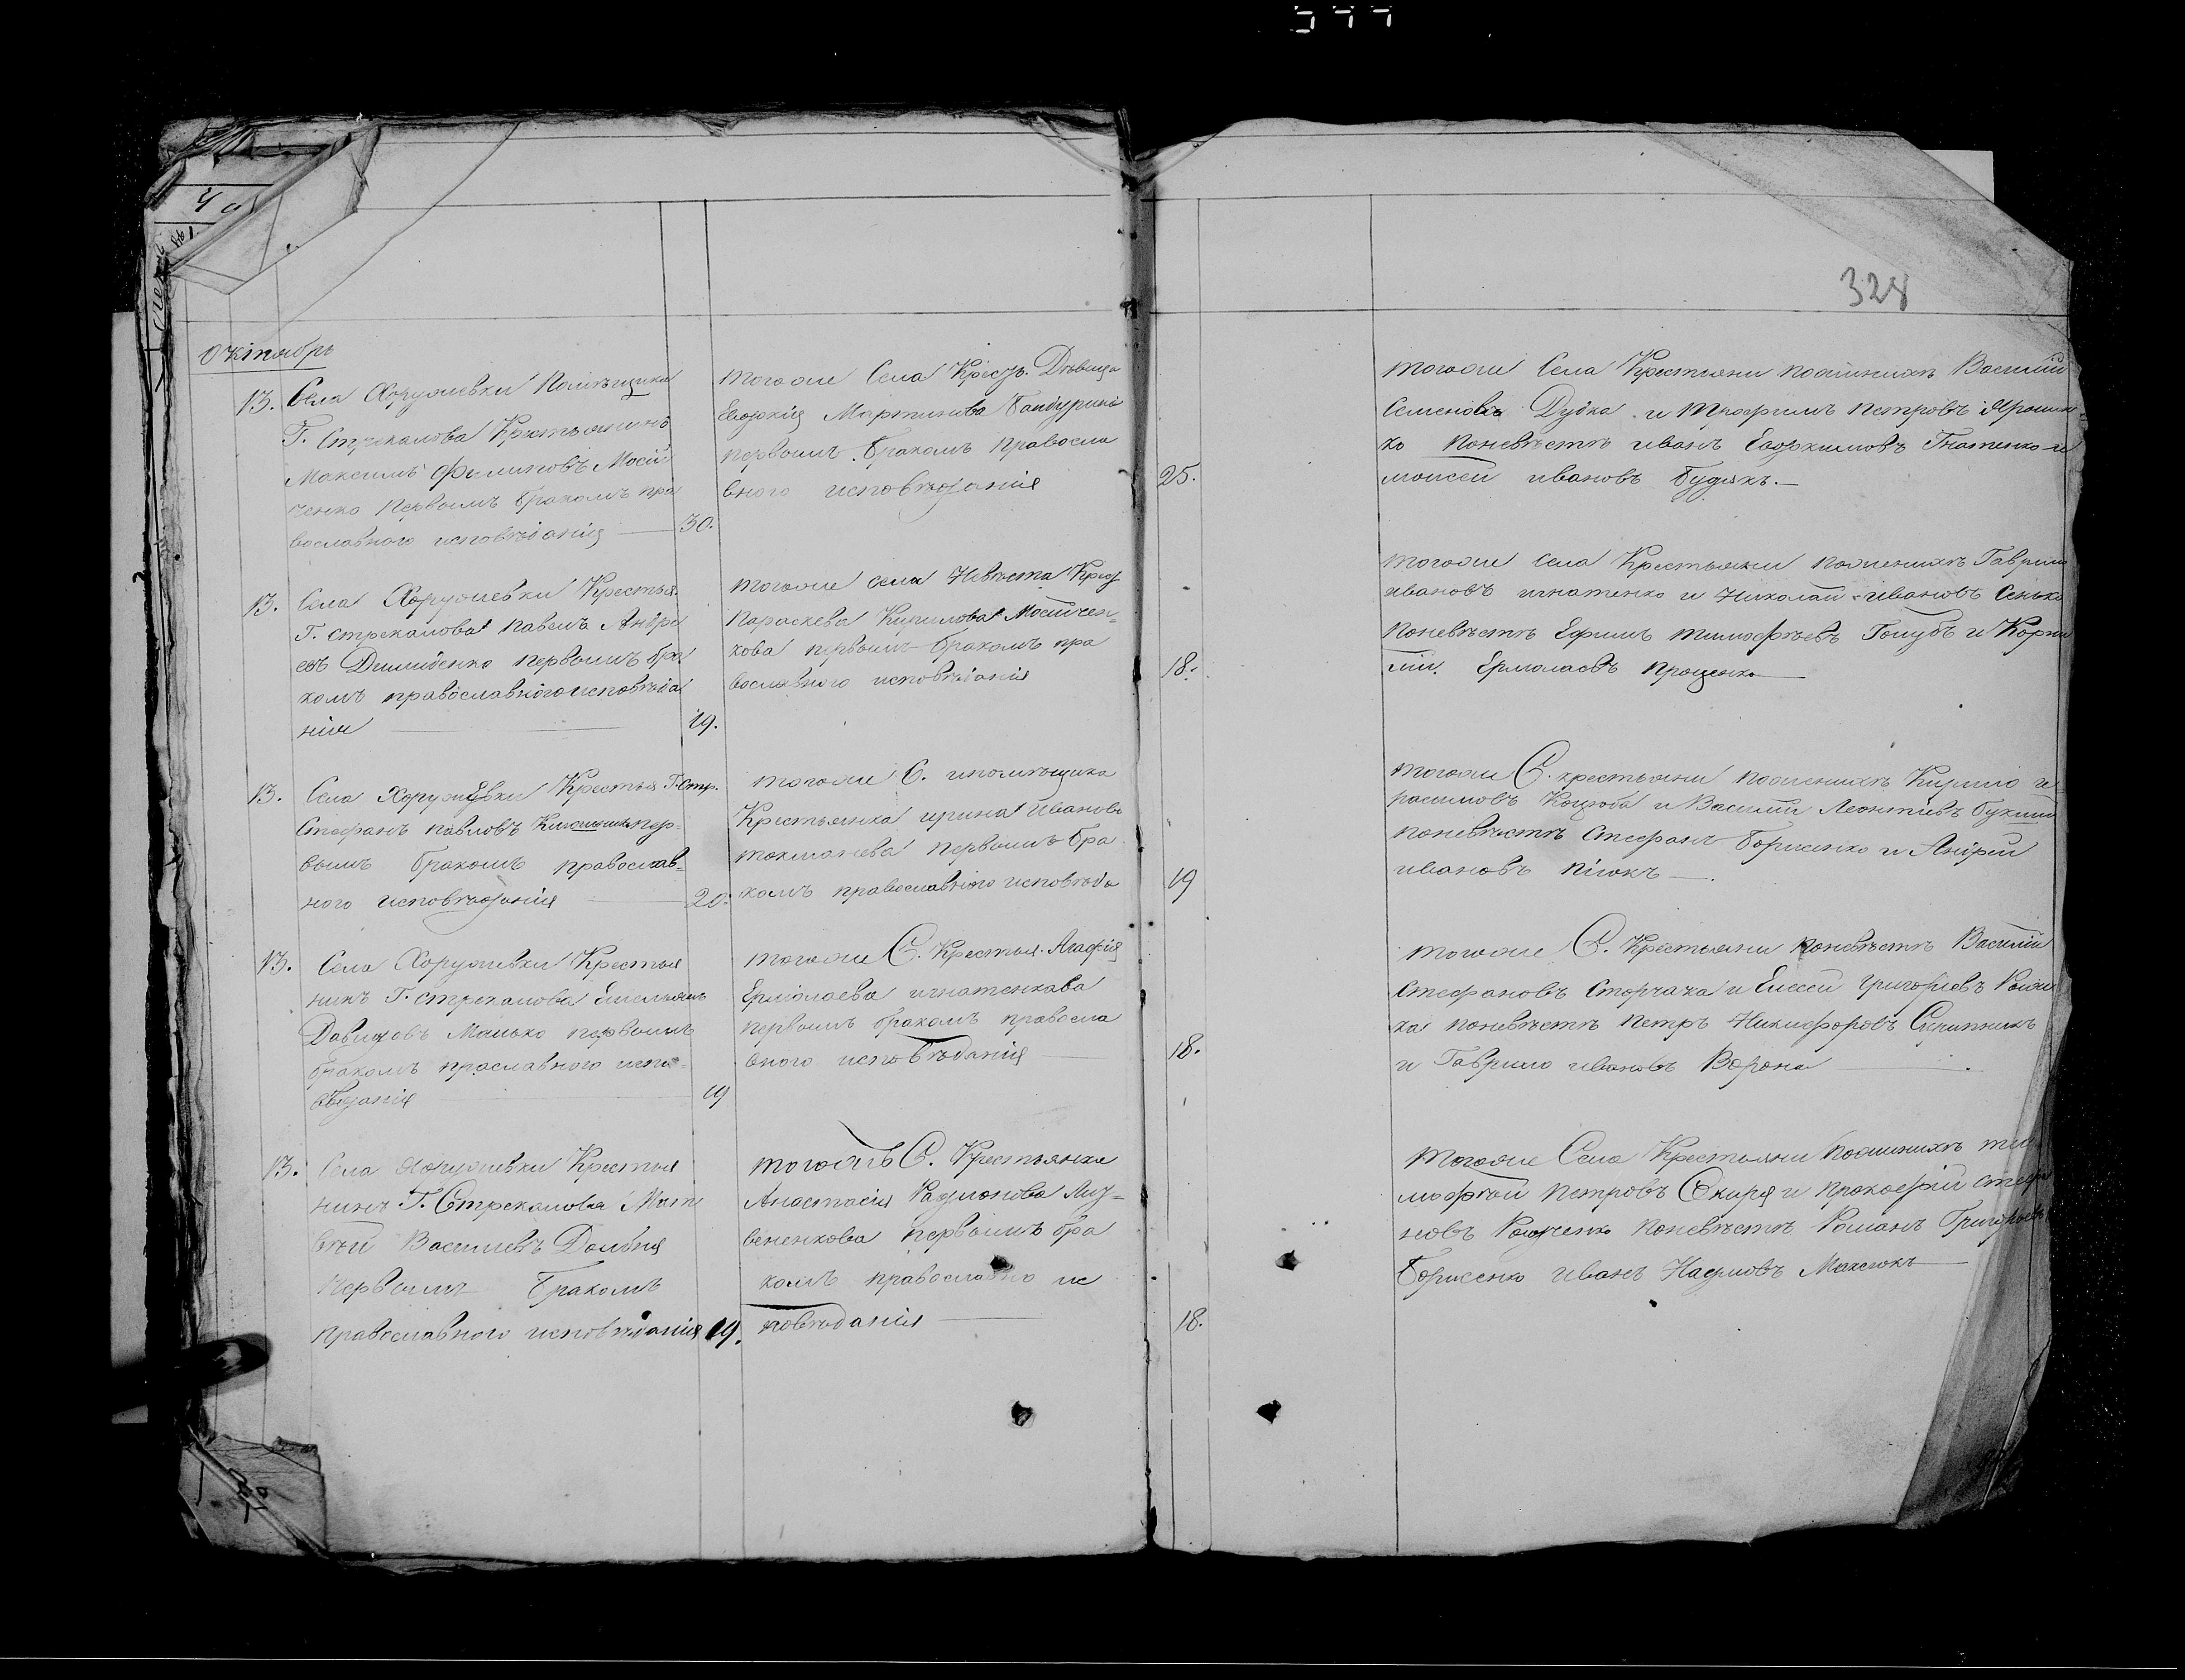 328
Октябрь
13. Села Хоружевки Помѣщика
Г. Стрекалова Крестьянинъ
Максимъ Филиповъ Мосій
ченко Первымъ бракомъ пра
вославного исповѣданія — 30.
Тогоже Села Крест. Дѣвица
Евдокія Мартинова Бандурина
первымъ бракомъ правосла
вного исповѣданія
25.
Тогоже Села Крестьяни поженихѣ Василій
Семеновъ Дудка и Трофимъ Петровъ Ярошен
ко Поневѣстѣ Иванъ Евдокимовъ Гнатенко и
Моисей Ивановъ Будякъ.—
13. Села Хоружевки Крестья.
Г. Стрекалова Павелъ Андре
евъ Демиденко первымъ бра
комъ православного исповѣда
нія — 19.
Тогоже села Невѣста Крес
Параскева Кирилова Мосійчен-
кова первымъ бракомъ пра
вославного исповѣданія
18.
Тогоже села Крестьяни поженихѣ Гаврило
Ивановъ Игнатенко и Николай Ивановъ Сенько
Поневѣстѣ Ефимъ Тимофѣевъ Голубъ и Корни
лій Ермолаевъ Проценко —
13. Села Хоружевки Крестья Г. Стр.
Стефанъ Павловъ пер-
вымъ бракомъ православ-
ного исповѣданія — 20.
Тогоже С. помѣщика
Крестьянка Ирина Иванова
Токманева первымъ бра
комъ православного исповѣда
19
Тогоже С. крестьяни поженихѣ Кирило Ге
расимовъ Коцюба и Василій Леонтіевъ
поневѣстѣ Стефанъ Борисенко и Андрей
Ивановъ —.
13. Села Хоружевки Крестья
нинъ Г. Стрекалова Емельянъ
Давидовъ Манько первымъ
бракомъ праславного испо-
вѣданія — 19
Тогоже С. Крестья. Агафія
Ермолаева Игнатенкава
первымъ бракомъ правосла
вного исповѣданія —
18.
Тогоже С. Крестьяни поневѣстѣ Василій
Стефановъ Сторчака и Елесей Григорьевъ
ка поневѣстѣ Петръ Никифоровъ Скрипникъ
и Гаврило Ивановъ Ворона —
13. Села Хоружевки Крестья
нинъ Г. Стрекалова Мат
вѣй Василіевъ Долбня
Первымъ Бракомъ
православного исповѣданія 19.
Тогожъ С. Крестьянка
Анастасія Радіонова Лит-
виненкова первымъ бра
комъ православно ис
повѣданія —
18.
Тогоже Села Крестьяни Поженихѣ Ти
мофѣй Петровъ Скиря и Прокофій Стефа
новъ Поневѣстѣ Романъ Григорьевъ
Борисенко Иванъ Наумовъ Максюкъ —